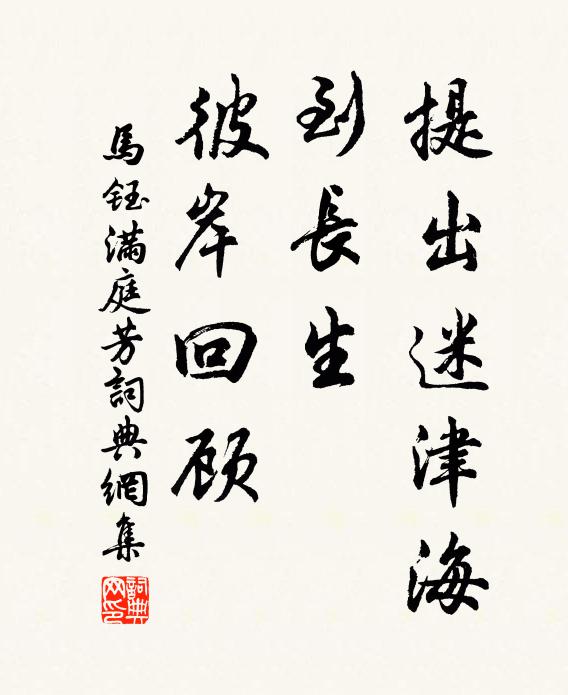 提出迷津海
到長生
彼岸回顾
馬鈺滿庭芳詞典網集
詞典
网印